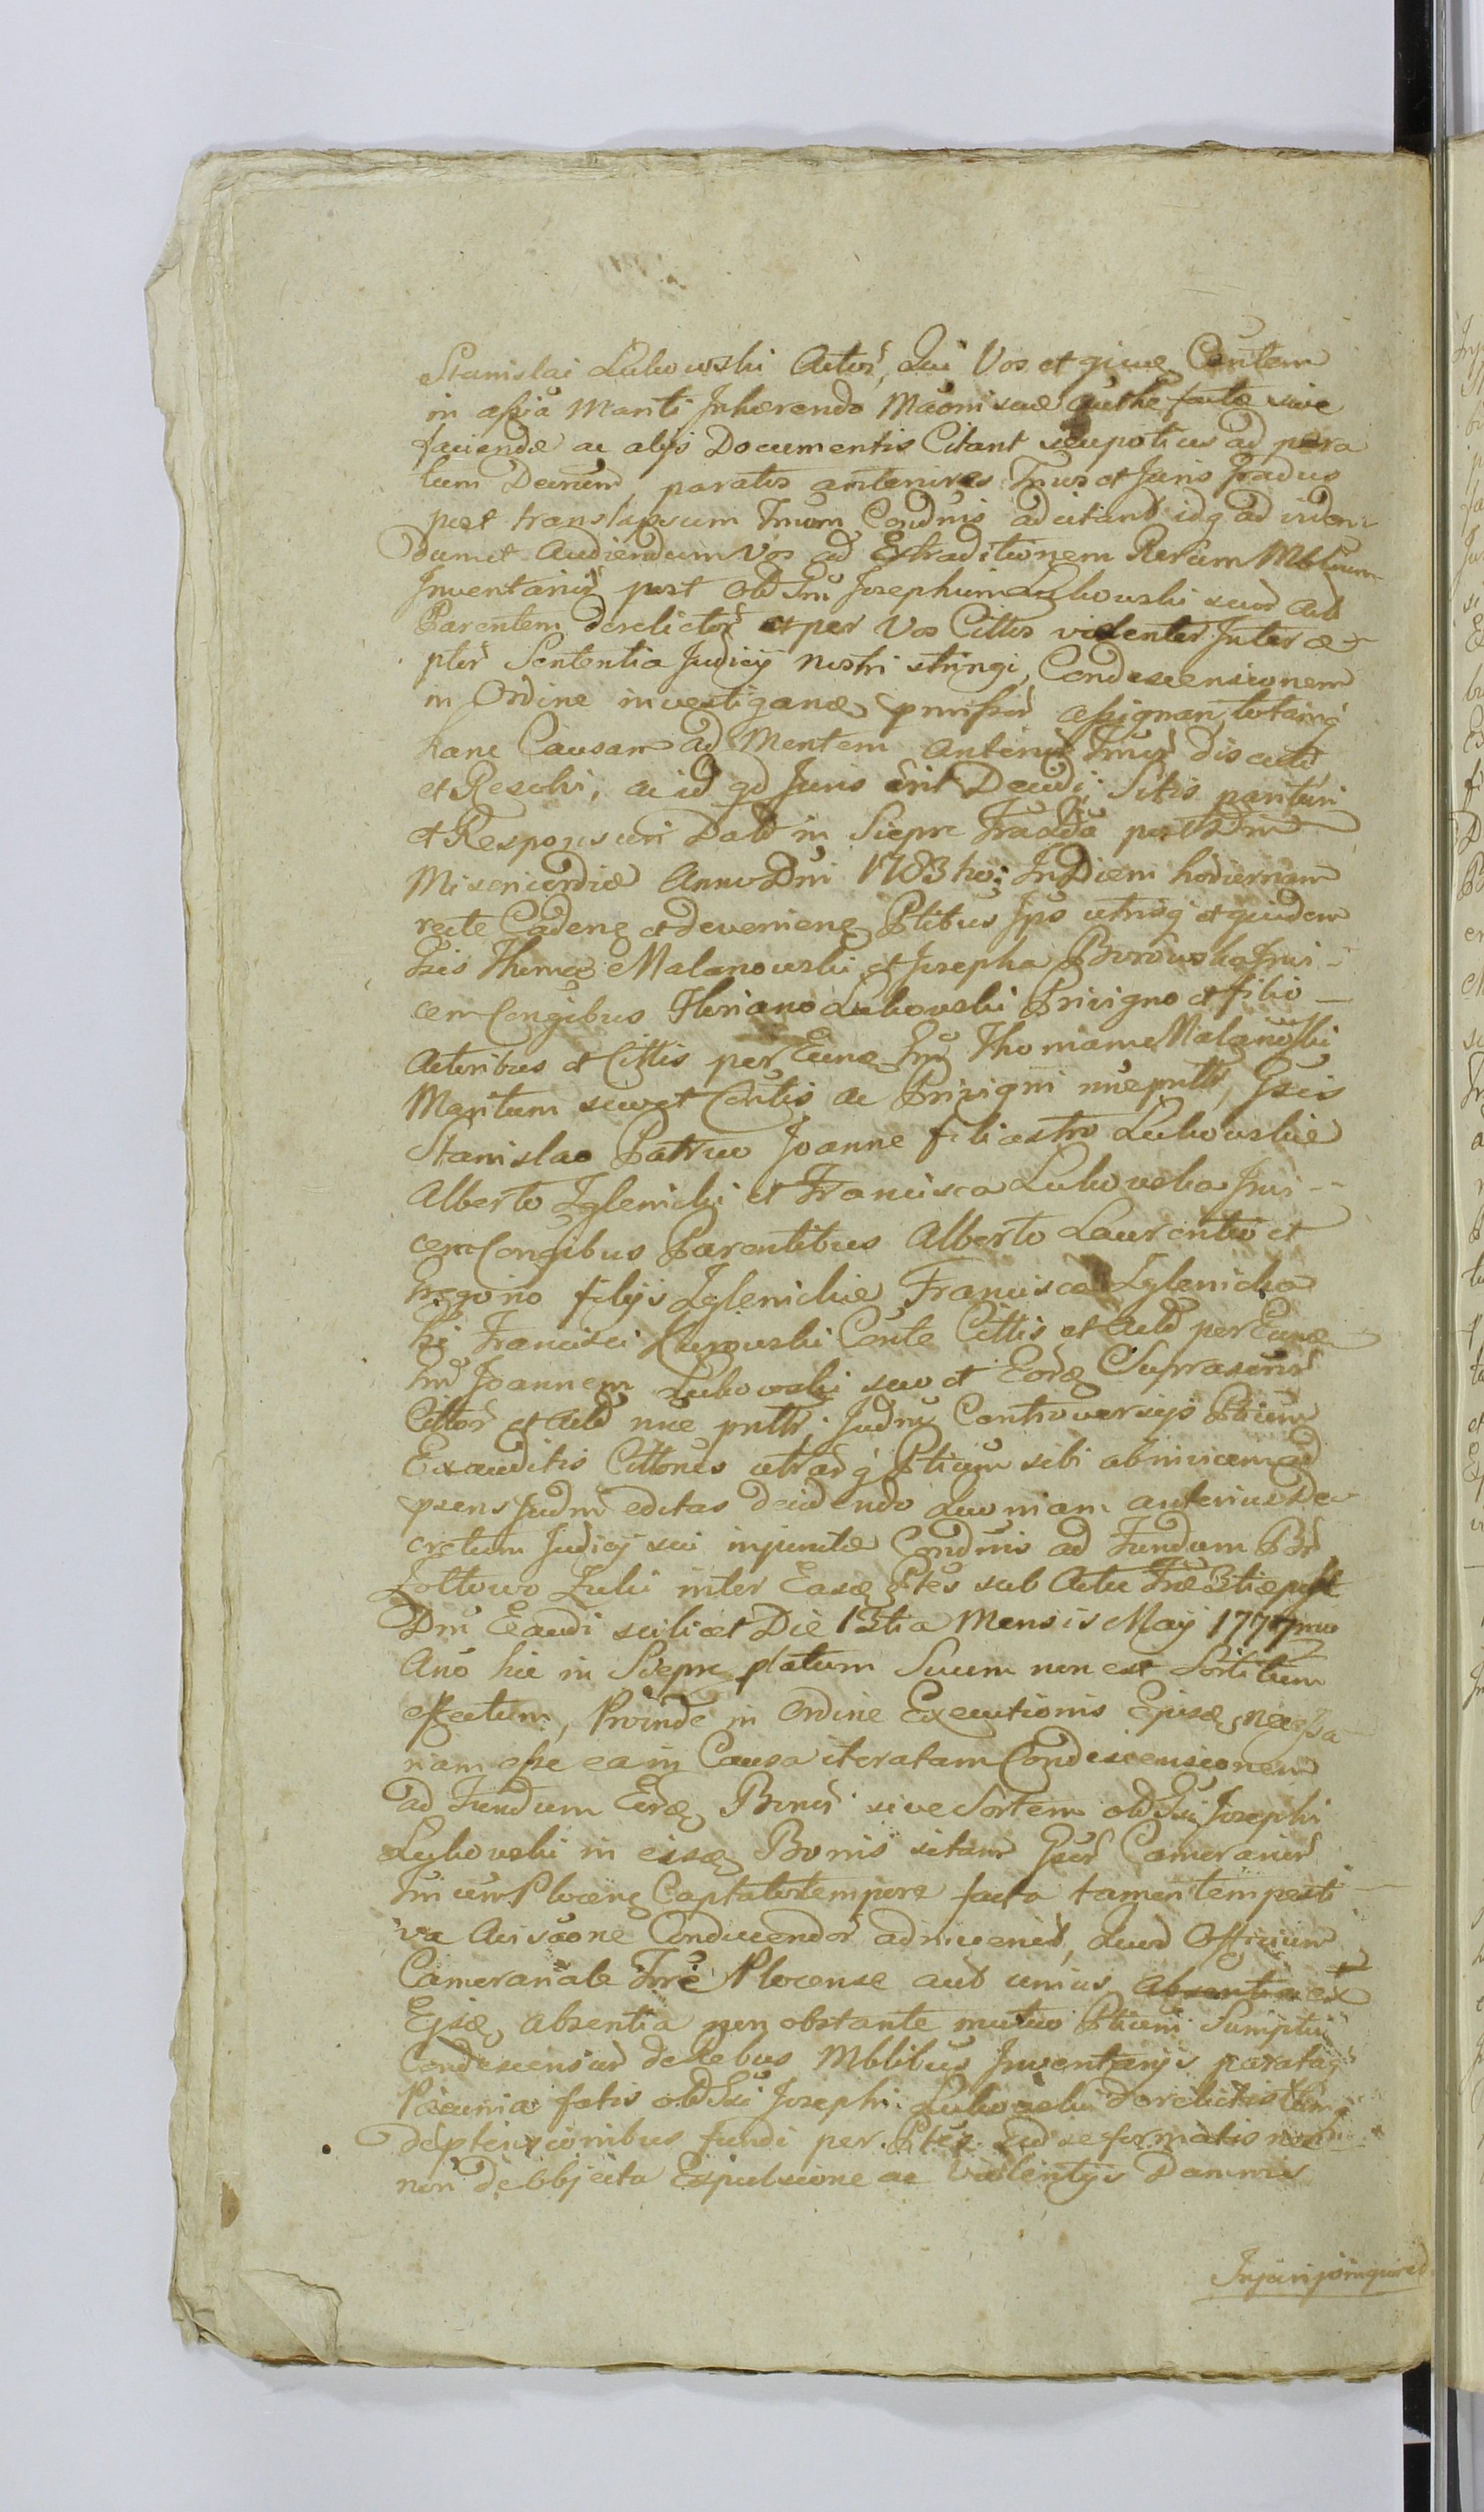 Stanislai Lukowski Actor, Qui Vos et qmvę Contem
in assia Mariti Inhærendo Maoni suæ Cursæ factæ sive
faciendæ ac alijs Documentis Citant seu potius ad para
tum Decisum, paratos anteriores Tmos et Juris Gradus
post translapsum Tmum Condnis adcitant idq ad viden-
dum et Audiendum Vos ad Extraditionem Rerum Mblium
Inventarior post Old Gm Josephum Lukowski suor Act
Parentem derelictor et per Vos Cittos violenter Interce-
ptor Sententia Judicij nostri stringi, Condescensionem
in Ordine investiganda pmissor assignan, totamq
hanc Causam ad Mentem anterior Tmor discuti
et Resolvi, ac id qd Juris erit Decidi; Sitis parituri
et Responsuri Datt in Sieprc post Dm
Misericordiæ Anno Dni 1783 tio; In Diem hodiernam
recte Cadenę et devenienę Ptibus Ipis utrisq et quidem
Gsis Thoma Malanowski et Josepha Borowska Invi-
cem Congibus Floriano Lukowski Privigno et filio
Actoribus et Cittis per Eunđ Gm Thomam Malanowski
Maritum suo et Contis ac Privigni nne pntte, Gsis
Stanislao Patruo Joanne filiastro Lukowskie
Alberto Zglenicki et Francisca Lukowska Invi-
cem Congibus Parentibus Alberto Laurentio et
Gregorio filijs Zglenickie Francisca Zglenicka
Gi Francisci Kurowski Conte Cittis et Actt per Eunđ
Gm Joannem Lukowski suo et Eord Suprascrior
Cittor et Actt nne pntte; Judm Controversijs Ptium
Exauditis Cittones utrarq Ptium sibi abinvicem ad
psens Judm editas decidendo Quoniam anterius De
cretum Judicij sui injunctæ Condnis ad Fundum Br
Zołtowo Zuki inter Easđ Ptes sub Actu Fræ 3tiæ post
Dm Exaudi scilicet Die 13tia Mensis Maij 1777mo
Ano hic in Sieprc platum Suum non est Sortitum
effectum, Proinde in Ordine Executionis Ejusđ necessa-
riam esse ea in Causa iteratam Condescensionem
ad Fundum Eord Bonor sive Sortem old Gsi Josephi
Lukowski in eisđ Bonis sitam Gsor Camerarior
Trium Plocenę Captato tempore facta tamen tempesti-
va Avisaone Conducendor adinvenit, Quod Officium
Camerariale Træ Plocense aut unius
Ejsđ absentia non obstante mutuo Ptium Sumptu
Condescensur de Rebus Mblibus Inventarijs parataq
Pecunia fatis old Gsi Josephi Lukowski derelictis
deptensionibus fundi per Ptes se formatis
non de Objecta Expulsione ac Violentijs Damnis
Injurijs